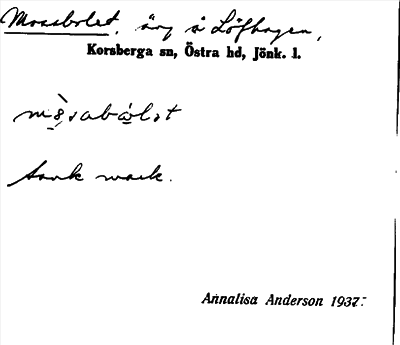 Mossabolet, äng å Löfhagen,
Korsberga sn, Östra hd, Jönk. l.
Sank mark.
Annalisa Anderson 1937.